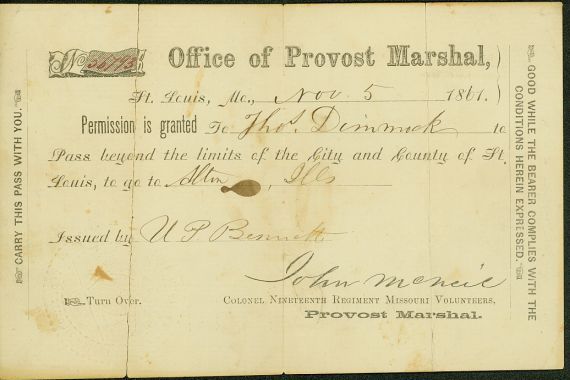 No 36793
Office of Provost Marshal,
St. Louis, Mo., Nov 5 1861.
Permission is granted To Thos. Dimmock to
Pass beyond the limits of the City and County of St.
Louis, to go to Alton, Ills
Issued by U P Bennett
John McNeil
Turn Over.
COLONEL NINETEENTH REGIMENT MISSOURI VOLUNTEERS,
Provost Marshal.
CARRY THIS PASS WITH YOU.
GOOD WHILE THE BEARER COMPLIES WITH THE
CONDITIONS HEREIN EXPRESSED.